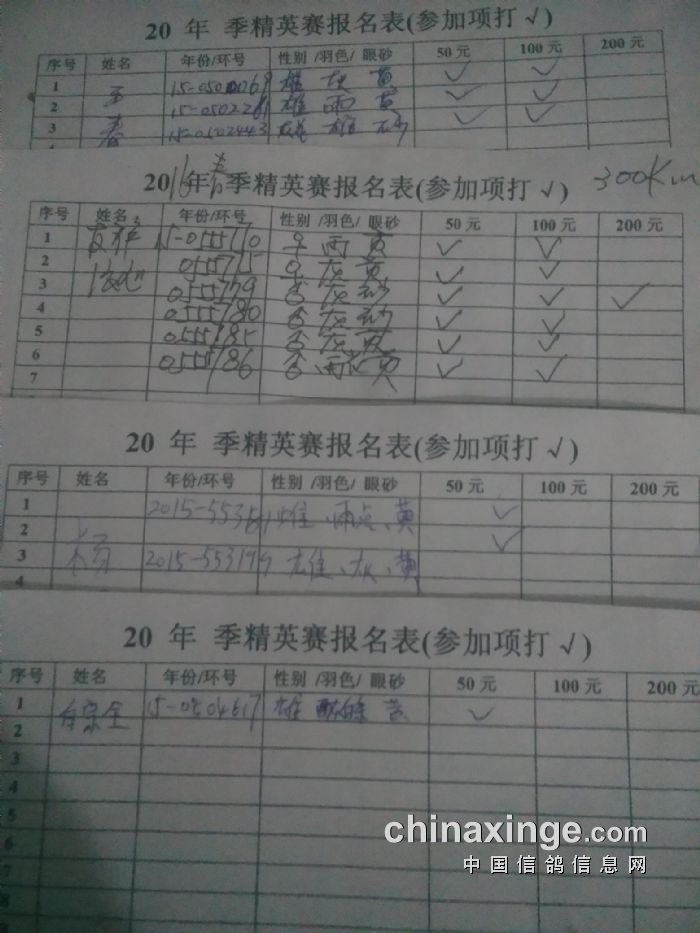 20 年 季精英赛报名表(参加项打 √)
序号 姓名 年份/环号 性别 /羽色/ 眼砂 50 元 100 元 200 元
1 15-0500069 雄 灰 黄 √ √
2 王 15-0502261 雄 雨 黄 √ √
3 春 15-0502443 √ √
2016年春季精英赛报名表(参加项打 √) 300Km
序号 姓名 年份/环号 性别 /羽色/ 眼砂 50 元 100 元 200 元
1 15-055770 雨 黄 √ √
2 055775 灰 黄 √ √
3 055779 灰 砂 √ √ √
4 055780 灰 砂 √ √
5 055785 灰 黄 √ √
6 055786 雨 黄 √ √
7
20 年 季精英赛报名表(参加项打 √)
序号 姓名 年份/环号 性别 /羽色/ 眼砂 50 元 100 元 200 元
1 雄、雨点、黄 √
2 √
3 杨 2015-553199 雄、灰、黄
4
20 年 季精英赛报名表(参加项打 √)
序号 姓名 年份/环号 性别 /羽色/ 眼砂 50 元 100 元 200 元
1 15-0504617 雄 黄 √
2 白宗全
3
4
5
6
7
8
chinaxinge.com
中国信鸽信息网